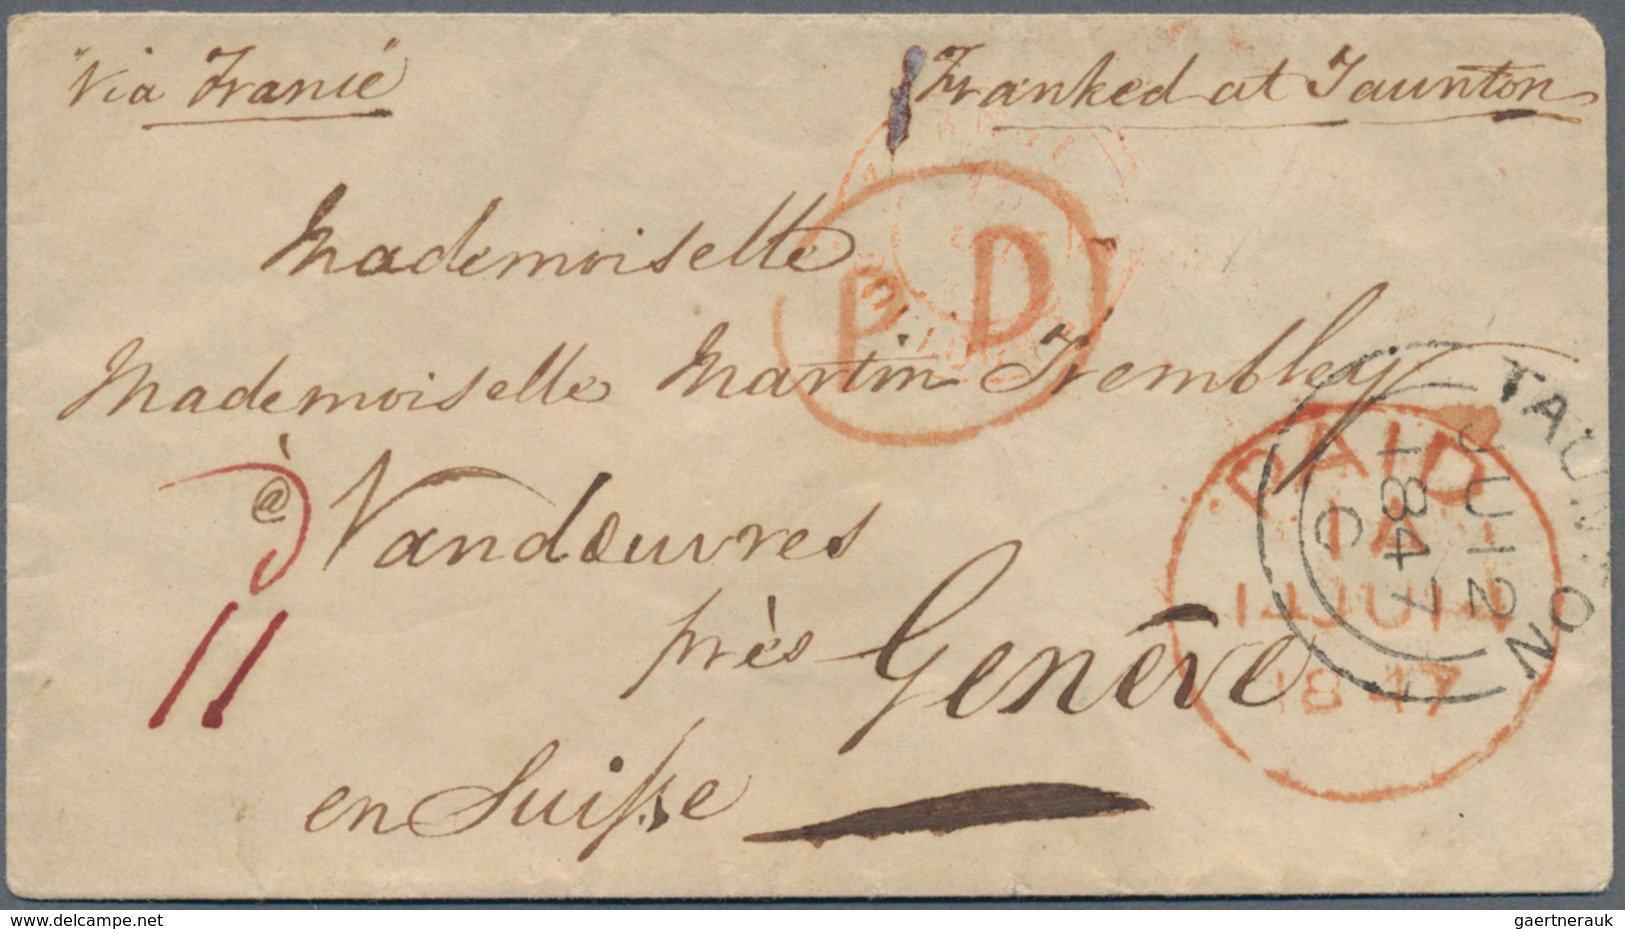 "Via Franie"
Franked at Taunton
Mademoiselle
PD
Mademoiselle Martin Trembley
à @ Vandœuvres
près Genève
en Suisse
11
PAID
1A
14JU14
1847
TAUNTON
JU12
1847
C
www.delcampe.net
gaertnerauk